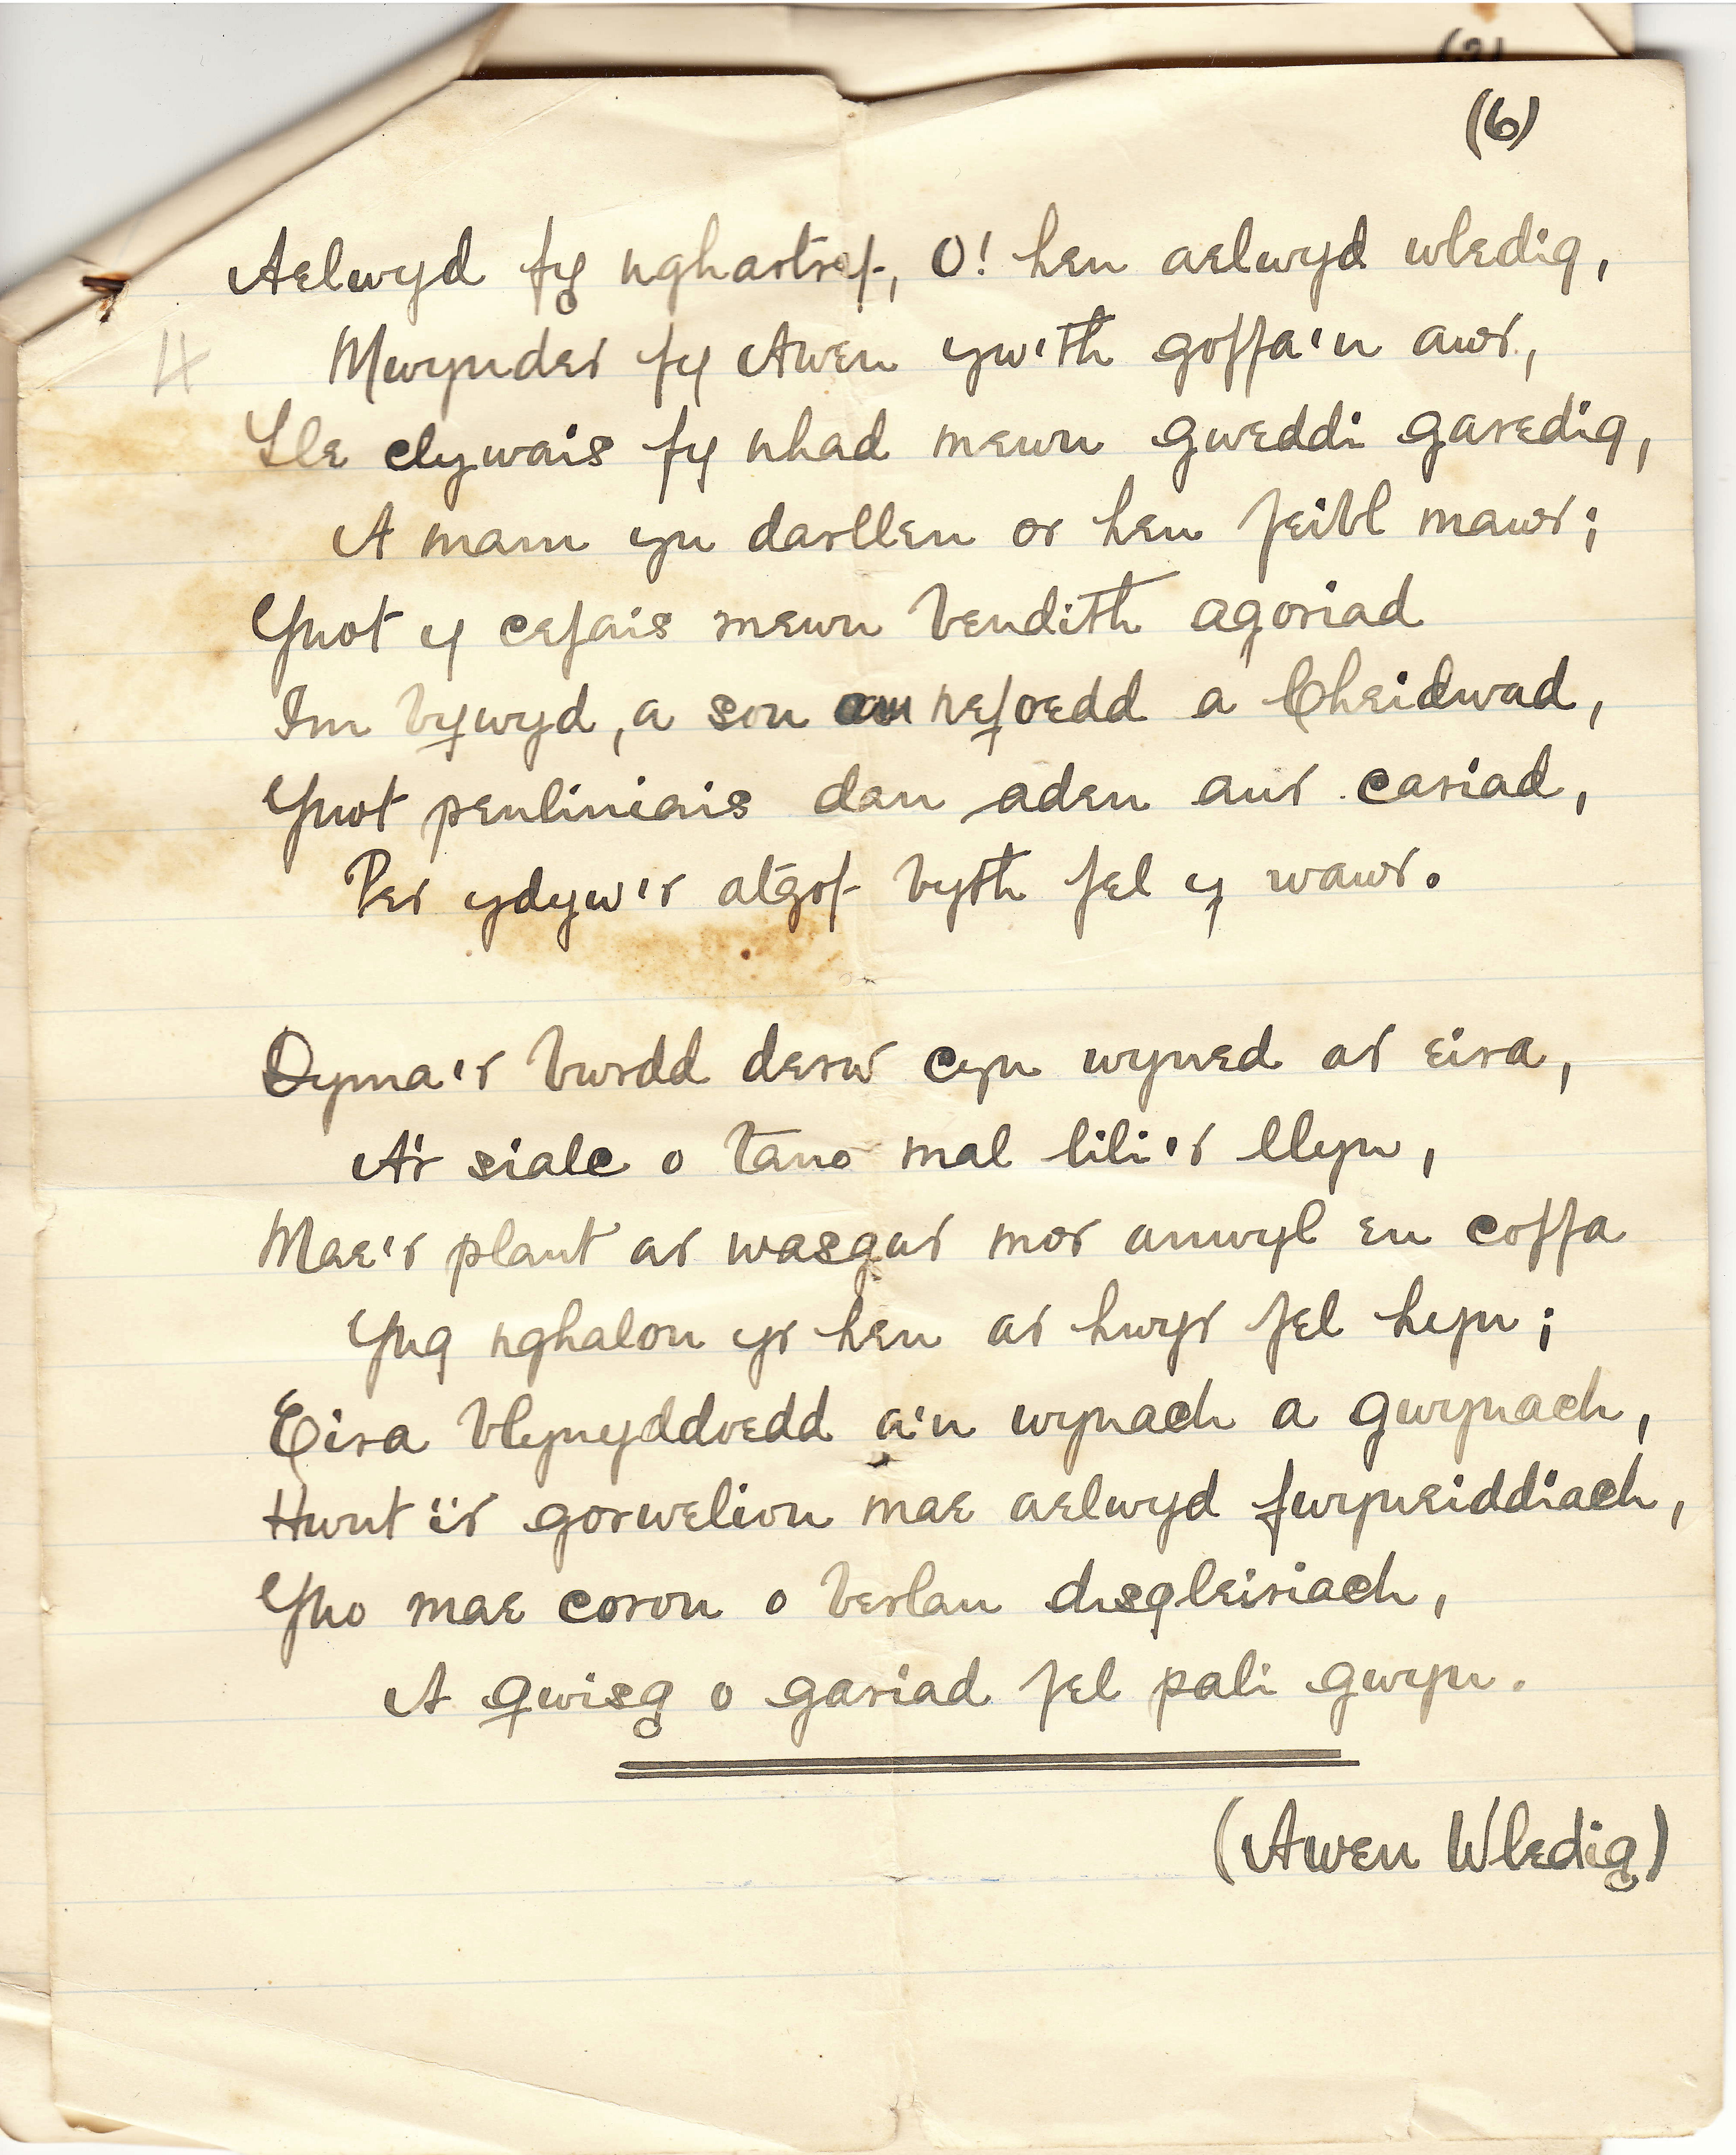 (6)
Aelwyd fy nghartref, O! hen aelwyd wledig,
Mwynder fy Awen yw'th goffa'n awr,
Lle clywais fy nhad mewn gweddi garedig,
A mam yn darllen or hen feibl mawr;
Ynot y cefais mewn bendith agoriad
Im bywyd, a son am nefoedd a Cheidwad,
Ynot penliniais dan aden aur cariad,
Per ydyw'r atgof byth fel y wawr.
Dyma'r bwrdd derw cyn wyned ar eira,
A'r sialc o tano mal lili'r llyn,
Mae'r plant ar wasgar mor anwyl eu coffa
Yng nghalon yr hen ar hwyr fel hyn;
Eira blynyddoedd a'n wynach a gwynach,
Hwnt i'r gorwelion mae aelwyd fwyneiddiach,
Yno mae coron o berlau disgleiriach,
A gwisg o gariad fel pali gwyn.
(Awen Wledig)